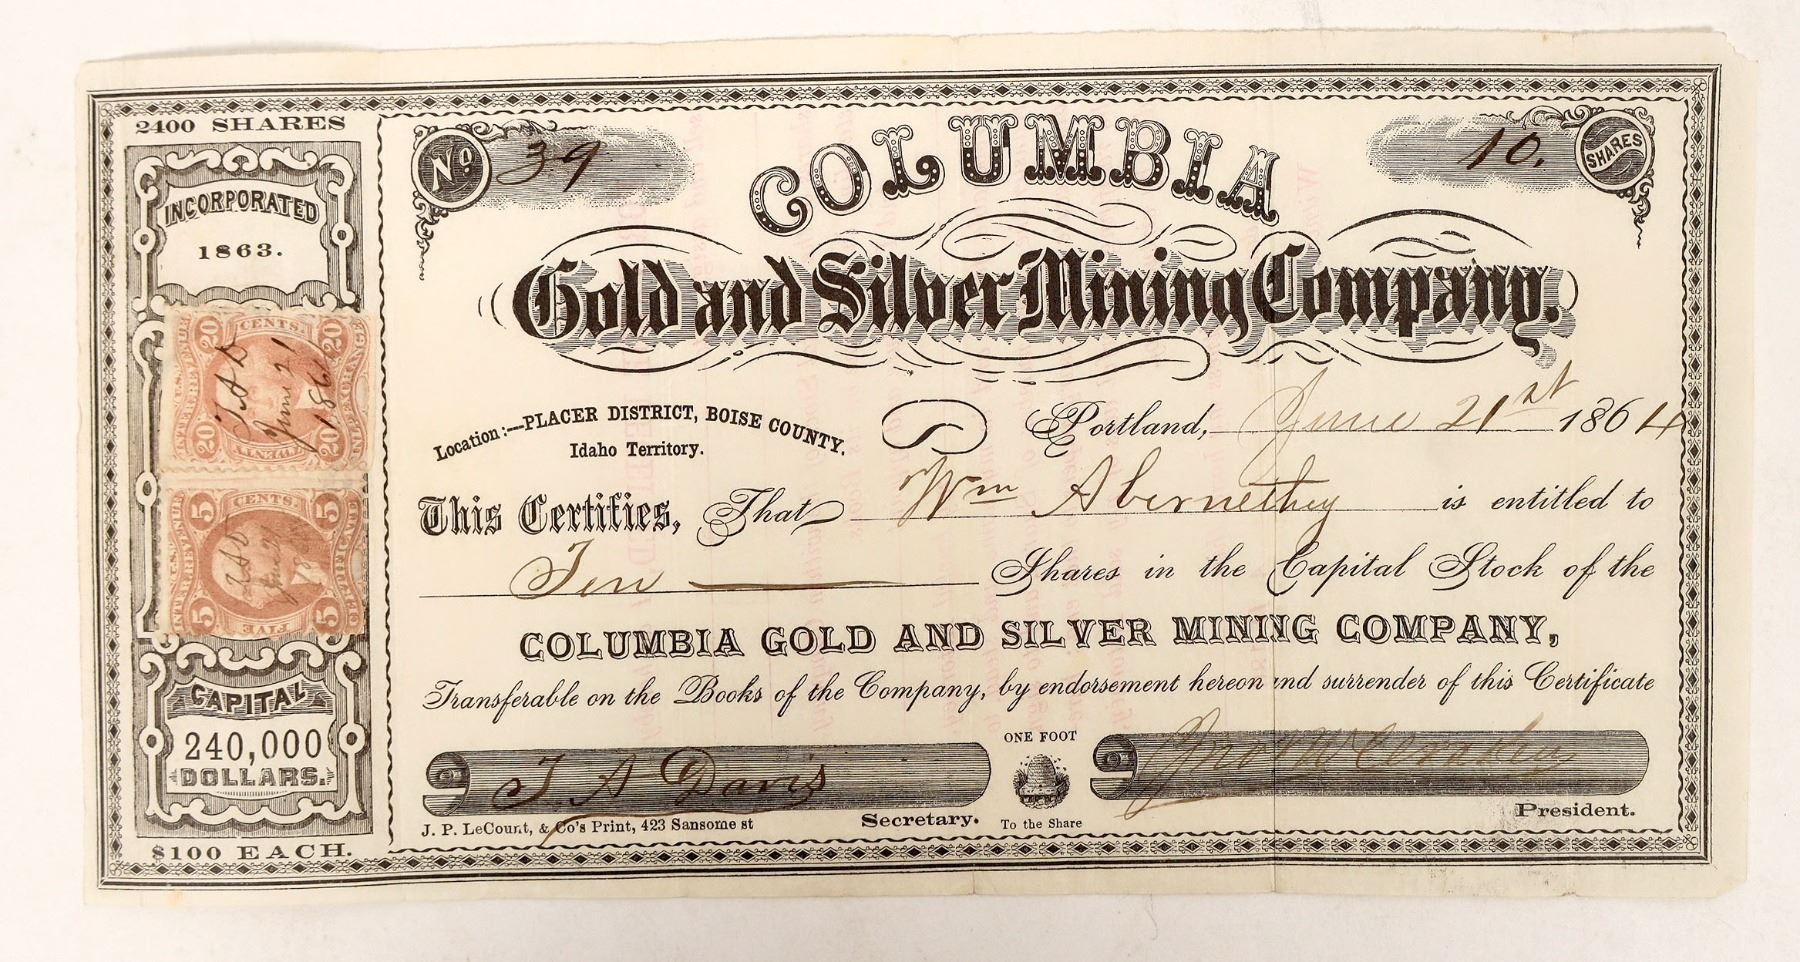 2400 SHARES
INCORPORATED
1863.
20 CENTS. 20
U.S. INTER. REVENUE
EXCHANGE
T A D
June 21
1864
20 TWENTY 20
5 CENTS 5
INTER. REVENUE
CERTIFICATE
TAD
June 2
18
5 FIVE 5
CAPITAL
240,000
DOLLARS.
$100 EACH.
No. 39
10. SHARES
COLUMBIA
Gold and Silver Mining Company.
Location:—PLACER DISTRICT, BOISE COUNTY.
Idaho Territory.
Portland, June 21st 1864
This Certifies, That Wm Abernethey is entitled to
Ten Shares in the Capital Stock of the
COLUMBIA GOLD AND SILVER MINING COMPANY,
Transferable on the Books of the Company, by endorsement hereon and surrender of this Certificate
T. A Davis
Secretary.
ONE FOOT
To the Share
President.
J. P. LeCount, & Co's Print, 423 Sansome st